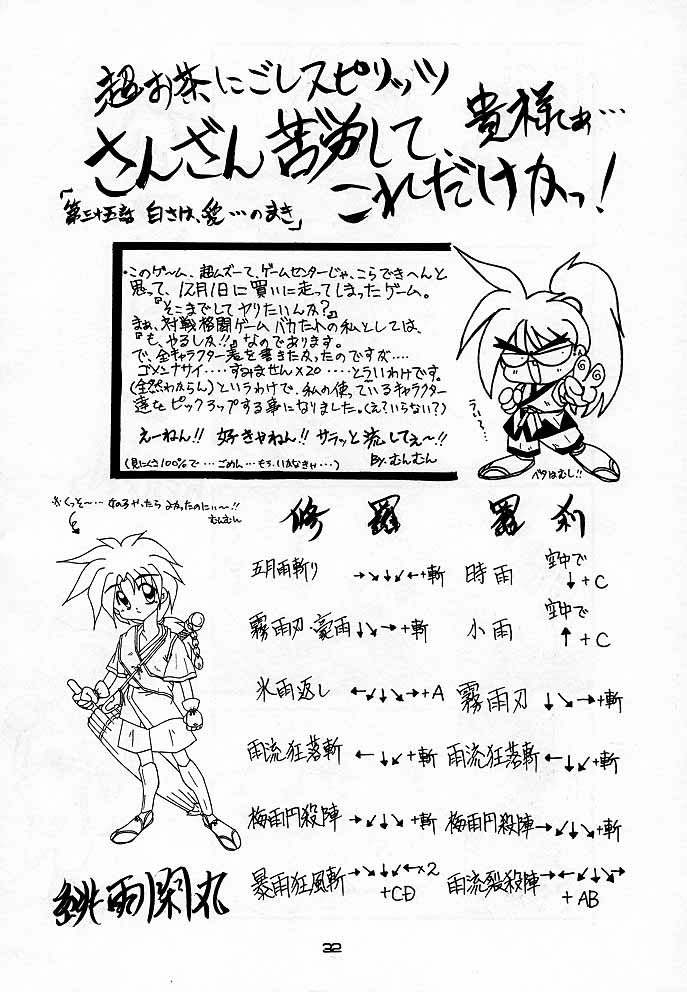 超お茶にごしスピリッツ
さんざん苦労して、
これだけかっ！
貴様しぁ…
「第三十五話 白さは、愛…のまき」
・このゲーム、超ムズーて、ゲームセンターじゃ、こらできへんと
思って、12月1日に買いに走ってしまったゲーム。
『そこまでして ヤリたいんか？』
まぁ、対戦格闘ゲームバカたれの私としては、
『も、やるしか!!』なのであります。
で、全キャラクター表を書きたかったのですが‥‥
ゴメンナサイ‥‥すみません×20 ‥‥とういうわけです。
(全然わからん)というわけで、私の使っているキャラクター
達をピックアップする事になりました。(え？いらない？)
えーねん!! 好きやねん!! サラッと流してぇ〜!!
(見にくさ100%で…ごめん…もう、いかなきゃ…)
By.むんむん
うぃ〜っ…
ベタはむし!!
※くっそ〜…
よかったのにぃ〜!!
むんむん
修羅
羅刹
五月雨斬り →↘↓↙←+斬
時雨 空中で ↓+C
霧雨刃・豪雨 ↓↘→+斬
小雨 空中で ↑+C
氷雨返し ←↙↓↘→+A
霧雨刃 ↓↘→+斬
雨流狂落斬 ←↓↙+斬
雨流狂落斬 ←↓↙+斬
梅雨円殺陣 →↙↓↘+斬
梅雨円殺陣 →↙↓↘+斬
暴雨狂風斬 →↘↓↙←×2 +CD
雨流裂殺陣 →←↙↓↘→ +AB
緋雨閑丸
32